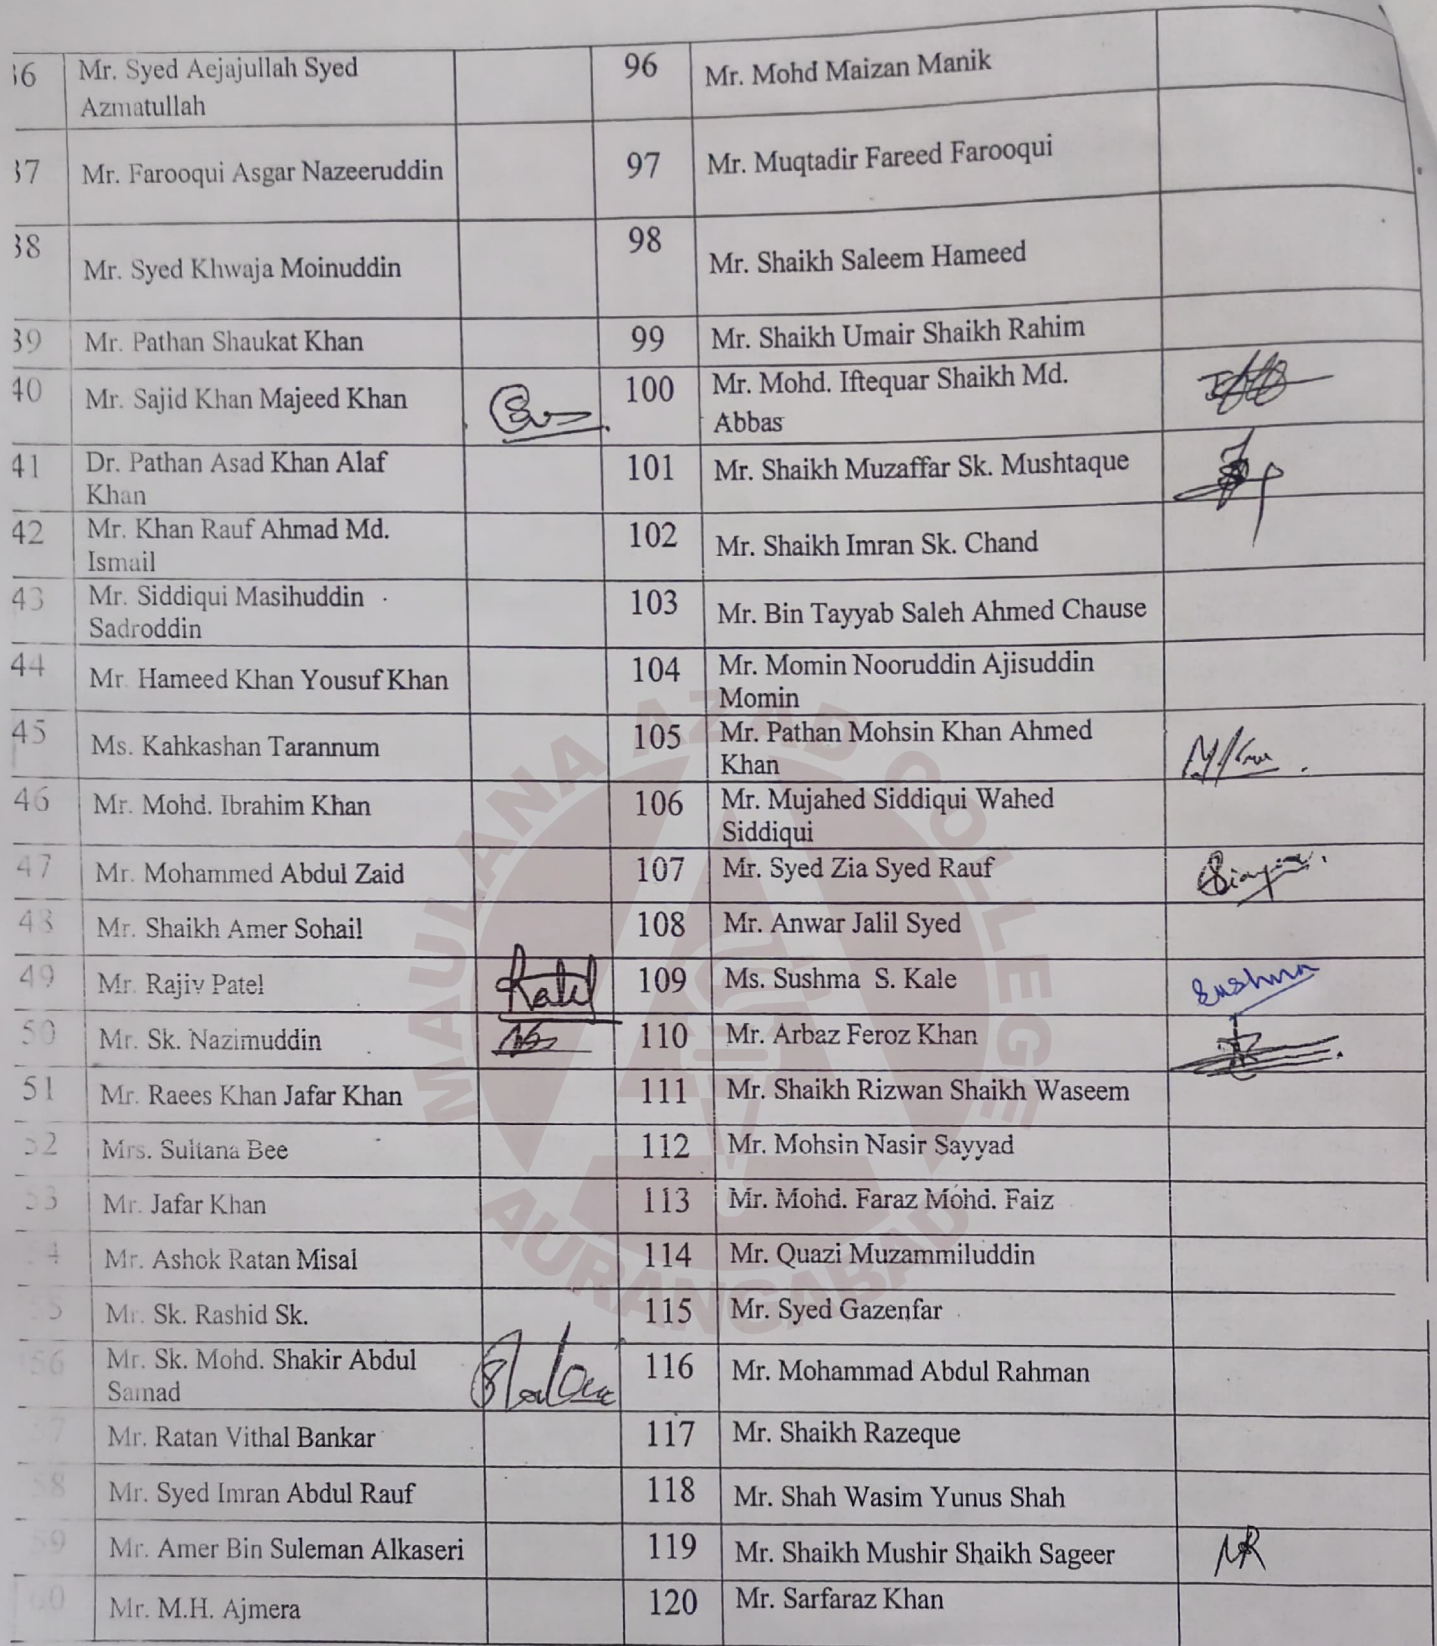 36 Mr. Syed Aejajullah Syed 96 Mr. Mohd Maizan Manik
Azmatullah
37 Mr. Farooqui Asgar Nazeeruddin 97 Mr. Muqtadir Fareed Farooqui
38 Mr. Syed Khwaja Moinuddin 98 Mr. Shaikh Saleem Hameed
39 Mr. Pathan Shaukat Khan 99 Mr. Shaikh Umair Shaikh Rahim
40 Mr. Sajid Khan Majeed Khan 100 Mr. Mohd. Iftequar Shaikh Md.
Abbas
41 Dr. Pathan Asad Khan Alaf 101 Mr. Shaikh Muzaffar Sk. Mushtaque
Khan
42 Mr. Khan Rauf Ahmad Md. 102 Mr. Shaikh Imran Sk. Chand
Ismail
43 Mr. Siddiqui Masihuddin 103 Mr. Bin Tayyab Saleh Ahmed Chause
Sadroddin
44 Mr. Hameed Khan Yousuf Khan 104 Mr. Momin Nooruddin Ajisuddin
Momin
45 Ms. Kahkashan Tarannum 105 Mr. Pathan Mohsin Khan Ahmed
Khan
46 Mr. Mohd. Ibrahim Khan 106 Mr. Mujahed Siddiqui Wahed
Siddiqui
47 Mr. Mohammed Abdul Zaid 107 Mr. Syed Zia Syed Rauf
48 Mr. Shaikh Amer Sohail 108 Mr. Anwar Jalil Syed
49 Mr. Rajiv Patel 109 Ms. Sushma S. Kale Sushma
50 Mr. Sk. Nazimuddin 110 Mr. Arbaz Feroz Khan
51 Mr. Raees Khan Jafar Khan 111 Mr. Shaikh Rizwan Shaikh Waseem
52 Mrs. Sultana Bee 112 Mr. Mohsin Nasir Sayyad
53 Mr. Jafar Khan 113 Mr. Mohd. Faraz Mohd. Faiz
54 Mr. Ashok Ratan Misal 114 Mr. Quazi Muzammiluddin
55 Mr. Sk. Rashid Sk. 115 Mr. Syed Gazenfar
56 Mr. Sk. Mohd. Shakir Abdul 116 Mr. Mohammad Abdul Rahman
Samad
57 Mr. Ratan Vithal Bankar 117 Mr. Shaikh Razeque
58 Mr. Syed Imran Abdul Rauf 118 Mr. Shah Wasim Yunus Shah
59 Mr. Amer Bin Suleman Alkaseri 119 Mr. Shaikh Mushir Shaikh Sageer
60 Mr. M.H. Ajmera 120 Mr. Sarfaraz Khan
MAULANA AZAD COLLEGE
AURANGABAD